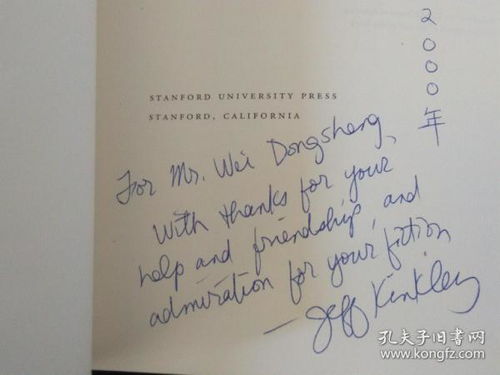 STANFORD UNIVERSITY PRESS
STANFORD, CALIFORNIA
2000年
For Mr. Wei Dongsheng,
With thanks for your
help and friendship, and
admiration for your fiction
— Jeff Kinkley
孔夫子旧书网
www.kongfz.com